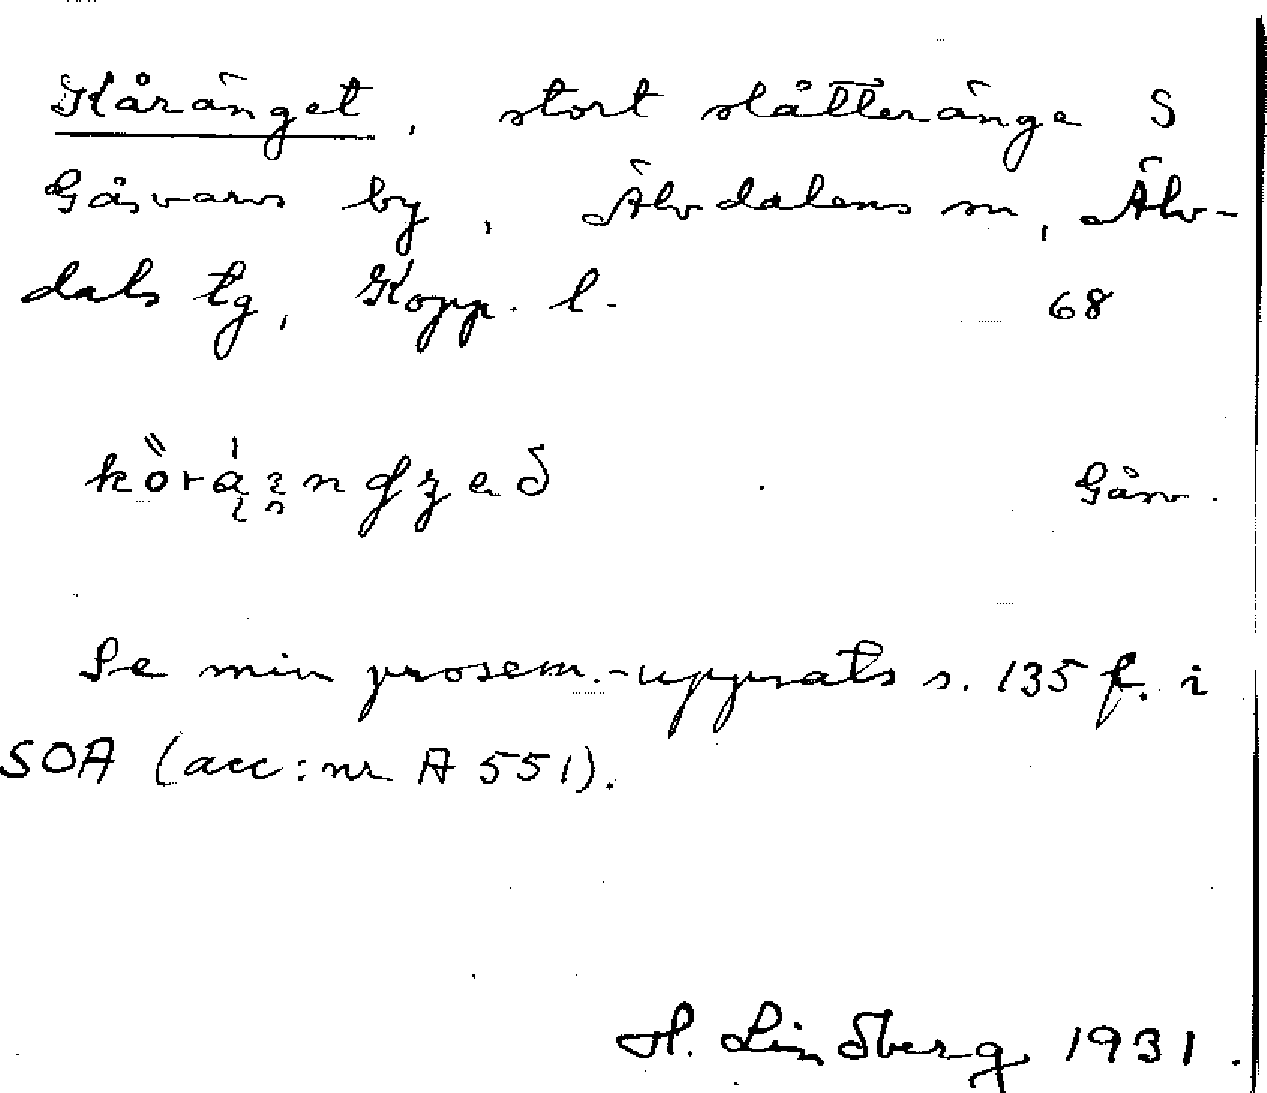 Kåränget, stort slåtteränge S
Gåsvarvs by, Älvdalens sn, Älv-
dals tg, Kopp. l. 68
Gåsv.
Se min prosem.-uppsats s. 135 f. i
SOA (acc:nr A 551).
H. Lindberg 1931.